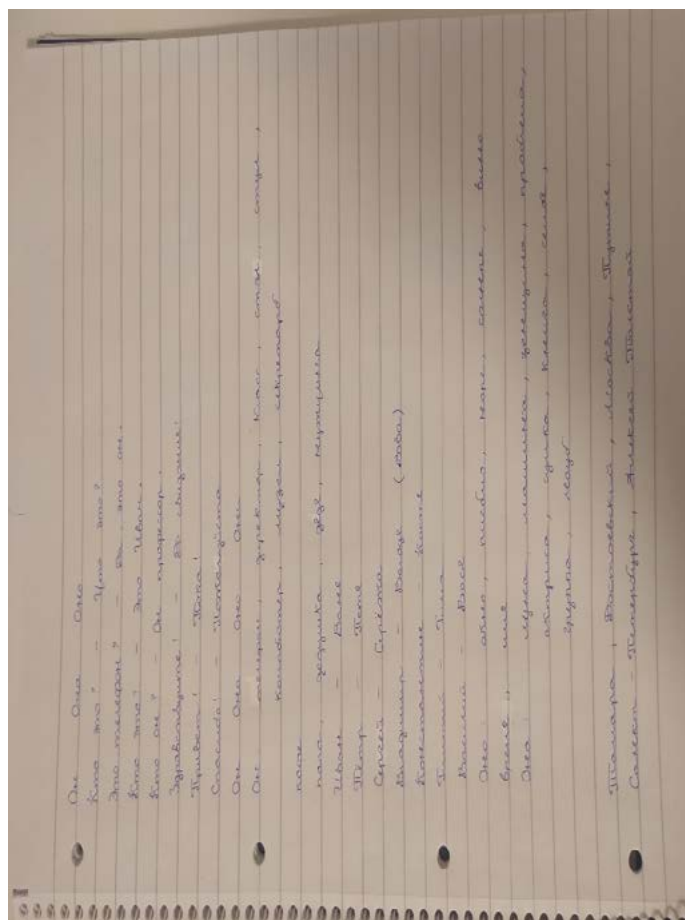 Он Она Оно
Кто это? - Что это?
Это телефон? - Да, это он.
Кто это? - Это Иван.
Кто он? - Он профессор.
Здравствуйте! - До свидания!
Привет! - Пока!
Спасибо! - Пожалуйста
Он Она Оно Они
Он: телефон, директор, класс, стол, стул,
компьютер, музей, секретарь
кофе
папа, дедушка, дядя, мужчина
Иван - Ваня
Пётр - Петя
Сергей - Серёжа
Владимир - Володя (Вова)
Константин - Костя
Тимофей - Тима
Василий - Вася
Оно: письмо, море, видео
время, имя
Она: машина, женщина, проблема,
актриса, сумка, книга, семья,
группа
Тамара, Достоевский, Москва,
Санкт-Петербург, Алексей Толстой